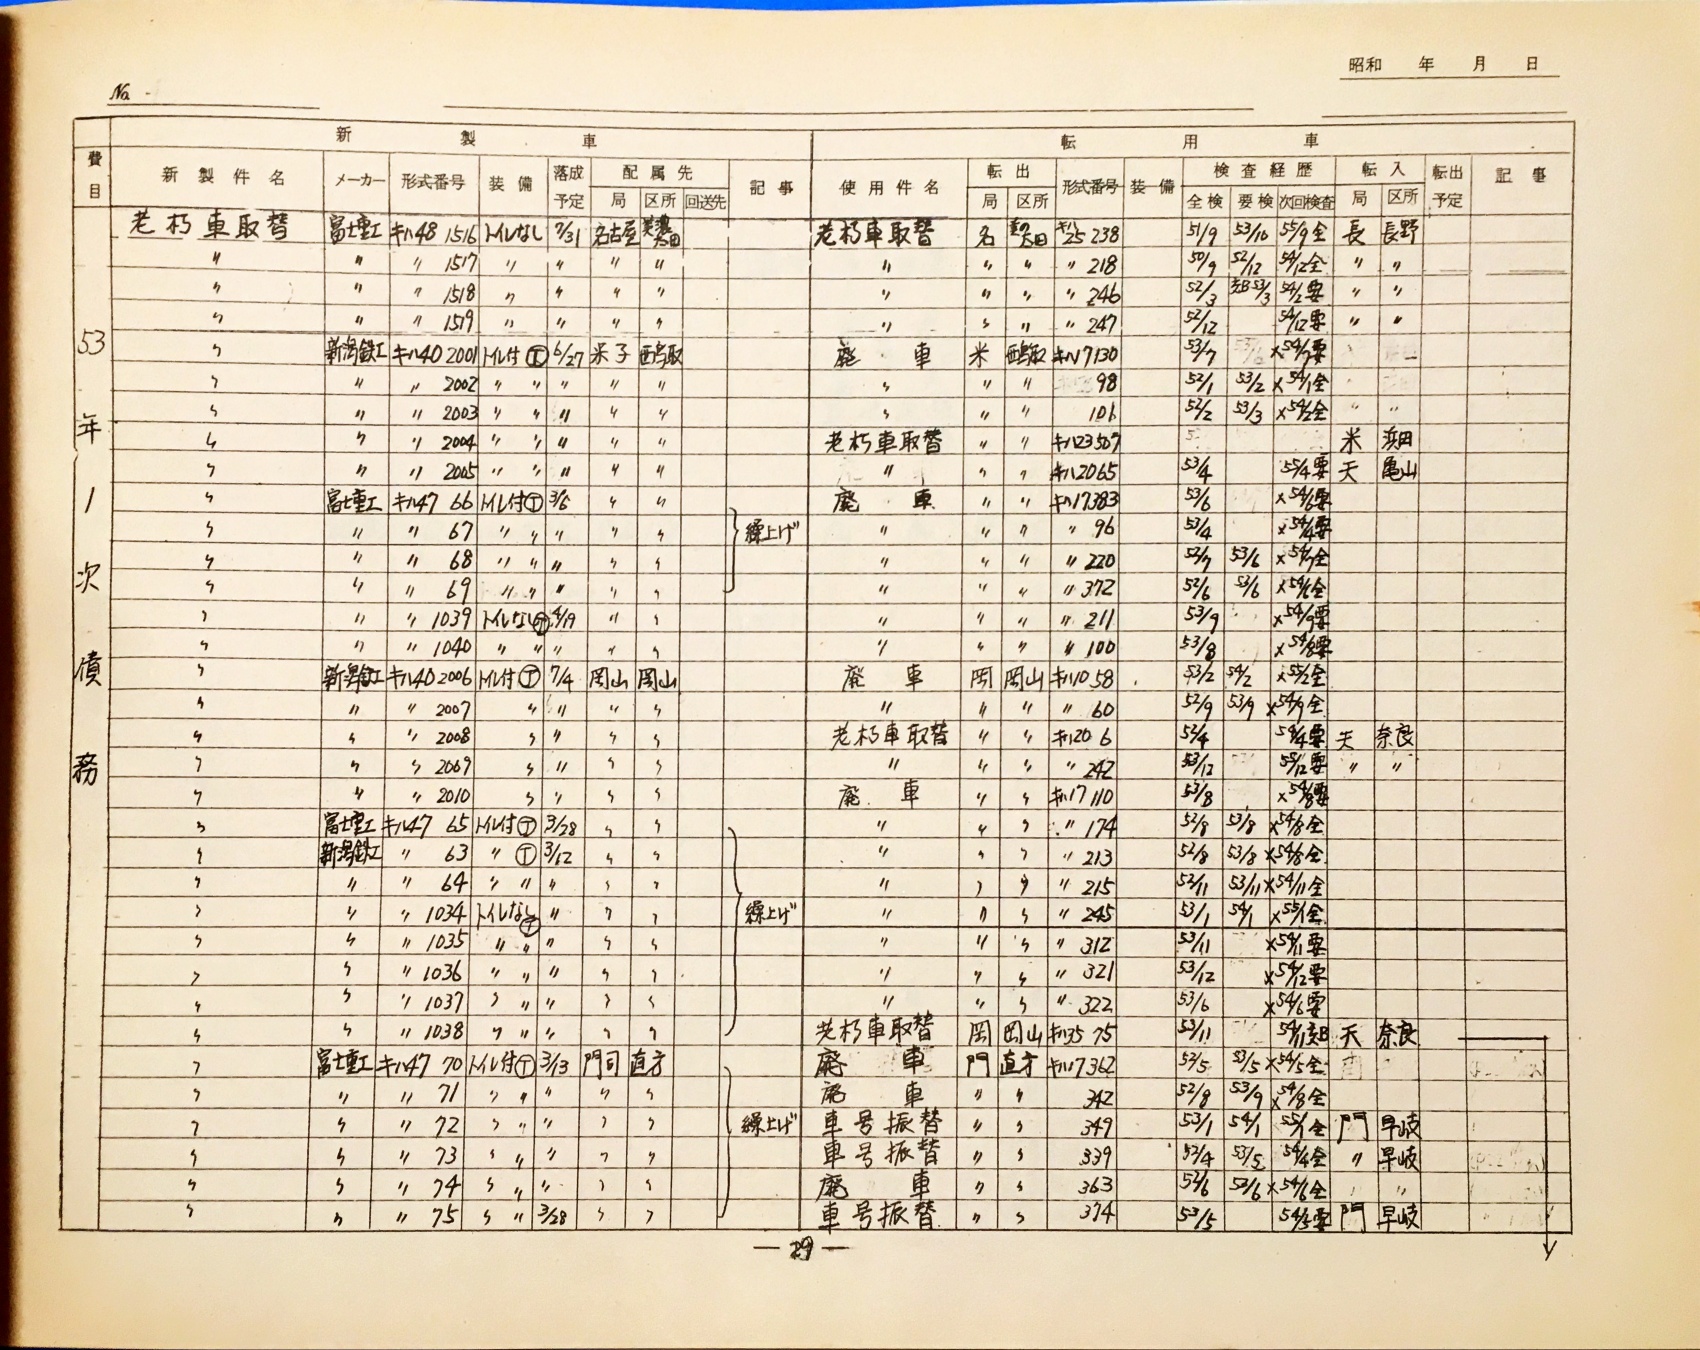 昭和 年 月 日
No.
新製車 転用車
費目 新製件名 メーカー 形式番号 装備 落成予定 配属先 局 区所 回送先 記事 使用件名 転出 局 区所 形式番号 装備 検査経歴 全検 要検 次回検査 転入 局 区所 転出予定 記事
53年1次債務
老朽車取替 富士重工 キハ48 1516 トイレなし 7/31 名古屋 美濃太田 老朽車取替 名 太田 キハ25 238 51/9 53/10 55/9全 長 長野
〃 〃 〃 1517 〃 〃 〃 〃 〃 〃 〃 〃 218 50/9 52/12 54/12全 〃 〃
〃 〃 〃 1518 〃 〃 〃 〃 〃 〃 〃 〃 246 52/3 53/3 54/2要 〃 〃
〃 〃 〃 1519 〃 〃 〃 〃 〃 〃 〃 〃 247 52/12 54/12要 〃 〃
〃 新潟鉄工 キハ40 2001 トイレ付 Ⓣ 6/27 米子 西鳥取 廃車 米 西鳥取 キハ17 130 53/7 ×54/7要
〃 〃 〃 2002 〃 〃 〃 〃 〃 〃 〃 〃 98 52/1 53/2 ×54/1全
〃 〃 〃 2003 〃 〃 〃 〃 〃 〃 〃 〃 106 52/2 53/3 ×54/2全
〃 〃 〃 2004 〃 〃 〃 〃 〃 老朽車取替 〃 〃 キハ23 507 米 浜田
〃 〃 〃 2005 〃 〃 〃 〃 〃 〃 〃 〃 キハ20 65 53/4 55/4要 天 亀山
〃 富士重工 キハ47 66 トイレ付 Ⓣ 3/6 〃 〃 廃車 〃 〃 キハ17 383 53/6 ×54/6要
〃 〃 〃 67 〃 〃 〃 〃 〃 繰上げ 〃 〃 〃 〃 96 53/4 ×54/4要
〃 〃 〃 68 〃 〃 〃 〃 〃 〃 〃 〃 〃 220 52/7 53/6 ×54/7全
〃 〃 〃 69 〃 〃 〃 〃 〃 〃 〃 〃 〃 372 52/6 53/6 ×54/6全
〃 〃 〃 1039 トイレなし Ⓣ 4/19 〃 〃 〃 〃 〃 〃 211 53/9 ×54/9要
〃 〃 〃 1040 〃 〃 〃 〃 〃 〃 〃 〃 〃 100 53/8 ×54/8要
〃 新潟鉄工 キハ40 2006 トイレ付 Ⓣ 7/4 岡山 岡山 廃車 岡 岡山 キハ10 58 53/2 54/2 ×55/2全
〃 〃 〃 2007 〃 〃 〃 〃 〃 〃 〃 〃 60 52/9 53/9 ×54/9全
〃 〃 〃 2008 〃 〃 〃 〃 老朽車取替 〃 〃 キハ20 6 52/4 54/4要 天 奈良
〃 〃 〃 2009 〃 〃 〃 〃 〃 〃 〃 〃 242 53/12 55/12要 〃 〃
〃 〃 〃 2010 〃 〃 〃 〃 廃車 〃 〃 キハ17 110 53/8 ×54/8要
〃 富士重工 キハ47 65 トイレ付 Ⓣ 3/28 〃 〃 〃 〃 〃 〃 174 52/8 53/8 ×54/8全
〃 新潟鉄工 〃 63 〃 Ⓣ 3/12 〃 〃 〃 〃 〃 〃 213 52/8 53/8 ×54/8全
〃 〃 〃 64 〃 〃 〃 〃 〃 〃 〃 〃 〃 215 52/11 53/11 ×54/11全
〃 〃 〃 1034 トイレなし Ⓣ 〃 〃 〃 繰上げ 〃 〃 〃 〃 245 53/1 54/1 ×55/1全
〃 〃 〃 1035 〃 〃 〃 〃 〃 〃 〃 〃 〃 312 53/11 ×54/11要
〃 〃 〃 1036 〃 〃 〃 〃 〃 〃 〃 〃 〃 321 53/12 ×54/12要
〃 〃 〃 1037 〃 〃 〃 〃 〃 〃 〃 〃 〃 322 53/6 ×54/6要
〃 〃 〃 1038 〃 〃 〃 〃 〃 老朽車取替 岡 岡山 キハ35 75 53/11 天 奈良
〃 富士重工 キハ47 70 トイレ付 Ⓣ 3/13 門司 直方 廃車 門 直方 キハ17 362 52/5 53/5 ×54/5全
〃 〃 〃 71 〃 〃 〃 〃 〃 廃車 〃 〃 342 52/8 53/9 ×54/8全
〃 〃 〃 72 〃 〃 〃 〃 〃 繰上げ 車号振替 〃 〃 349 53/1 54/1 55/1全 門 早岐
〃 〃 〃 73 〃 〃 〃 〃 〃 車号振替 〃 〃 339 52/4 53/5 54/4全 〃 早岐
〃 〃 〃 74 〃 〃 〃 〃 〃 廃車 〃 〃 363 52/6 53/6 ×54/6全
〃 〃 〃 75 〃 〃 3/28 〃 〃 車号振替 〃 〃 374 53/5 54/5要 門 早岐
— 29 —